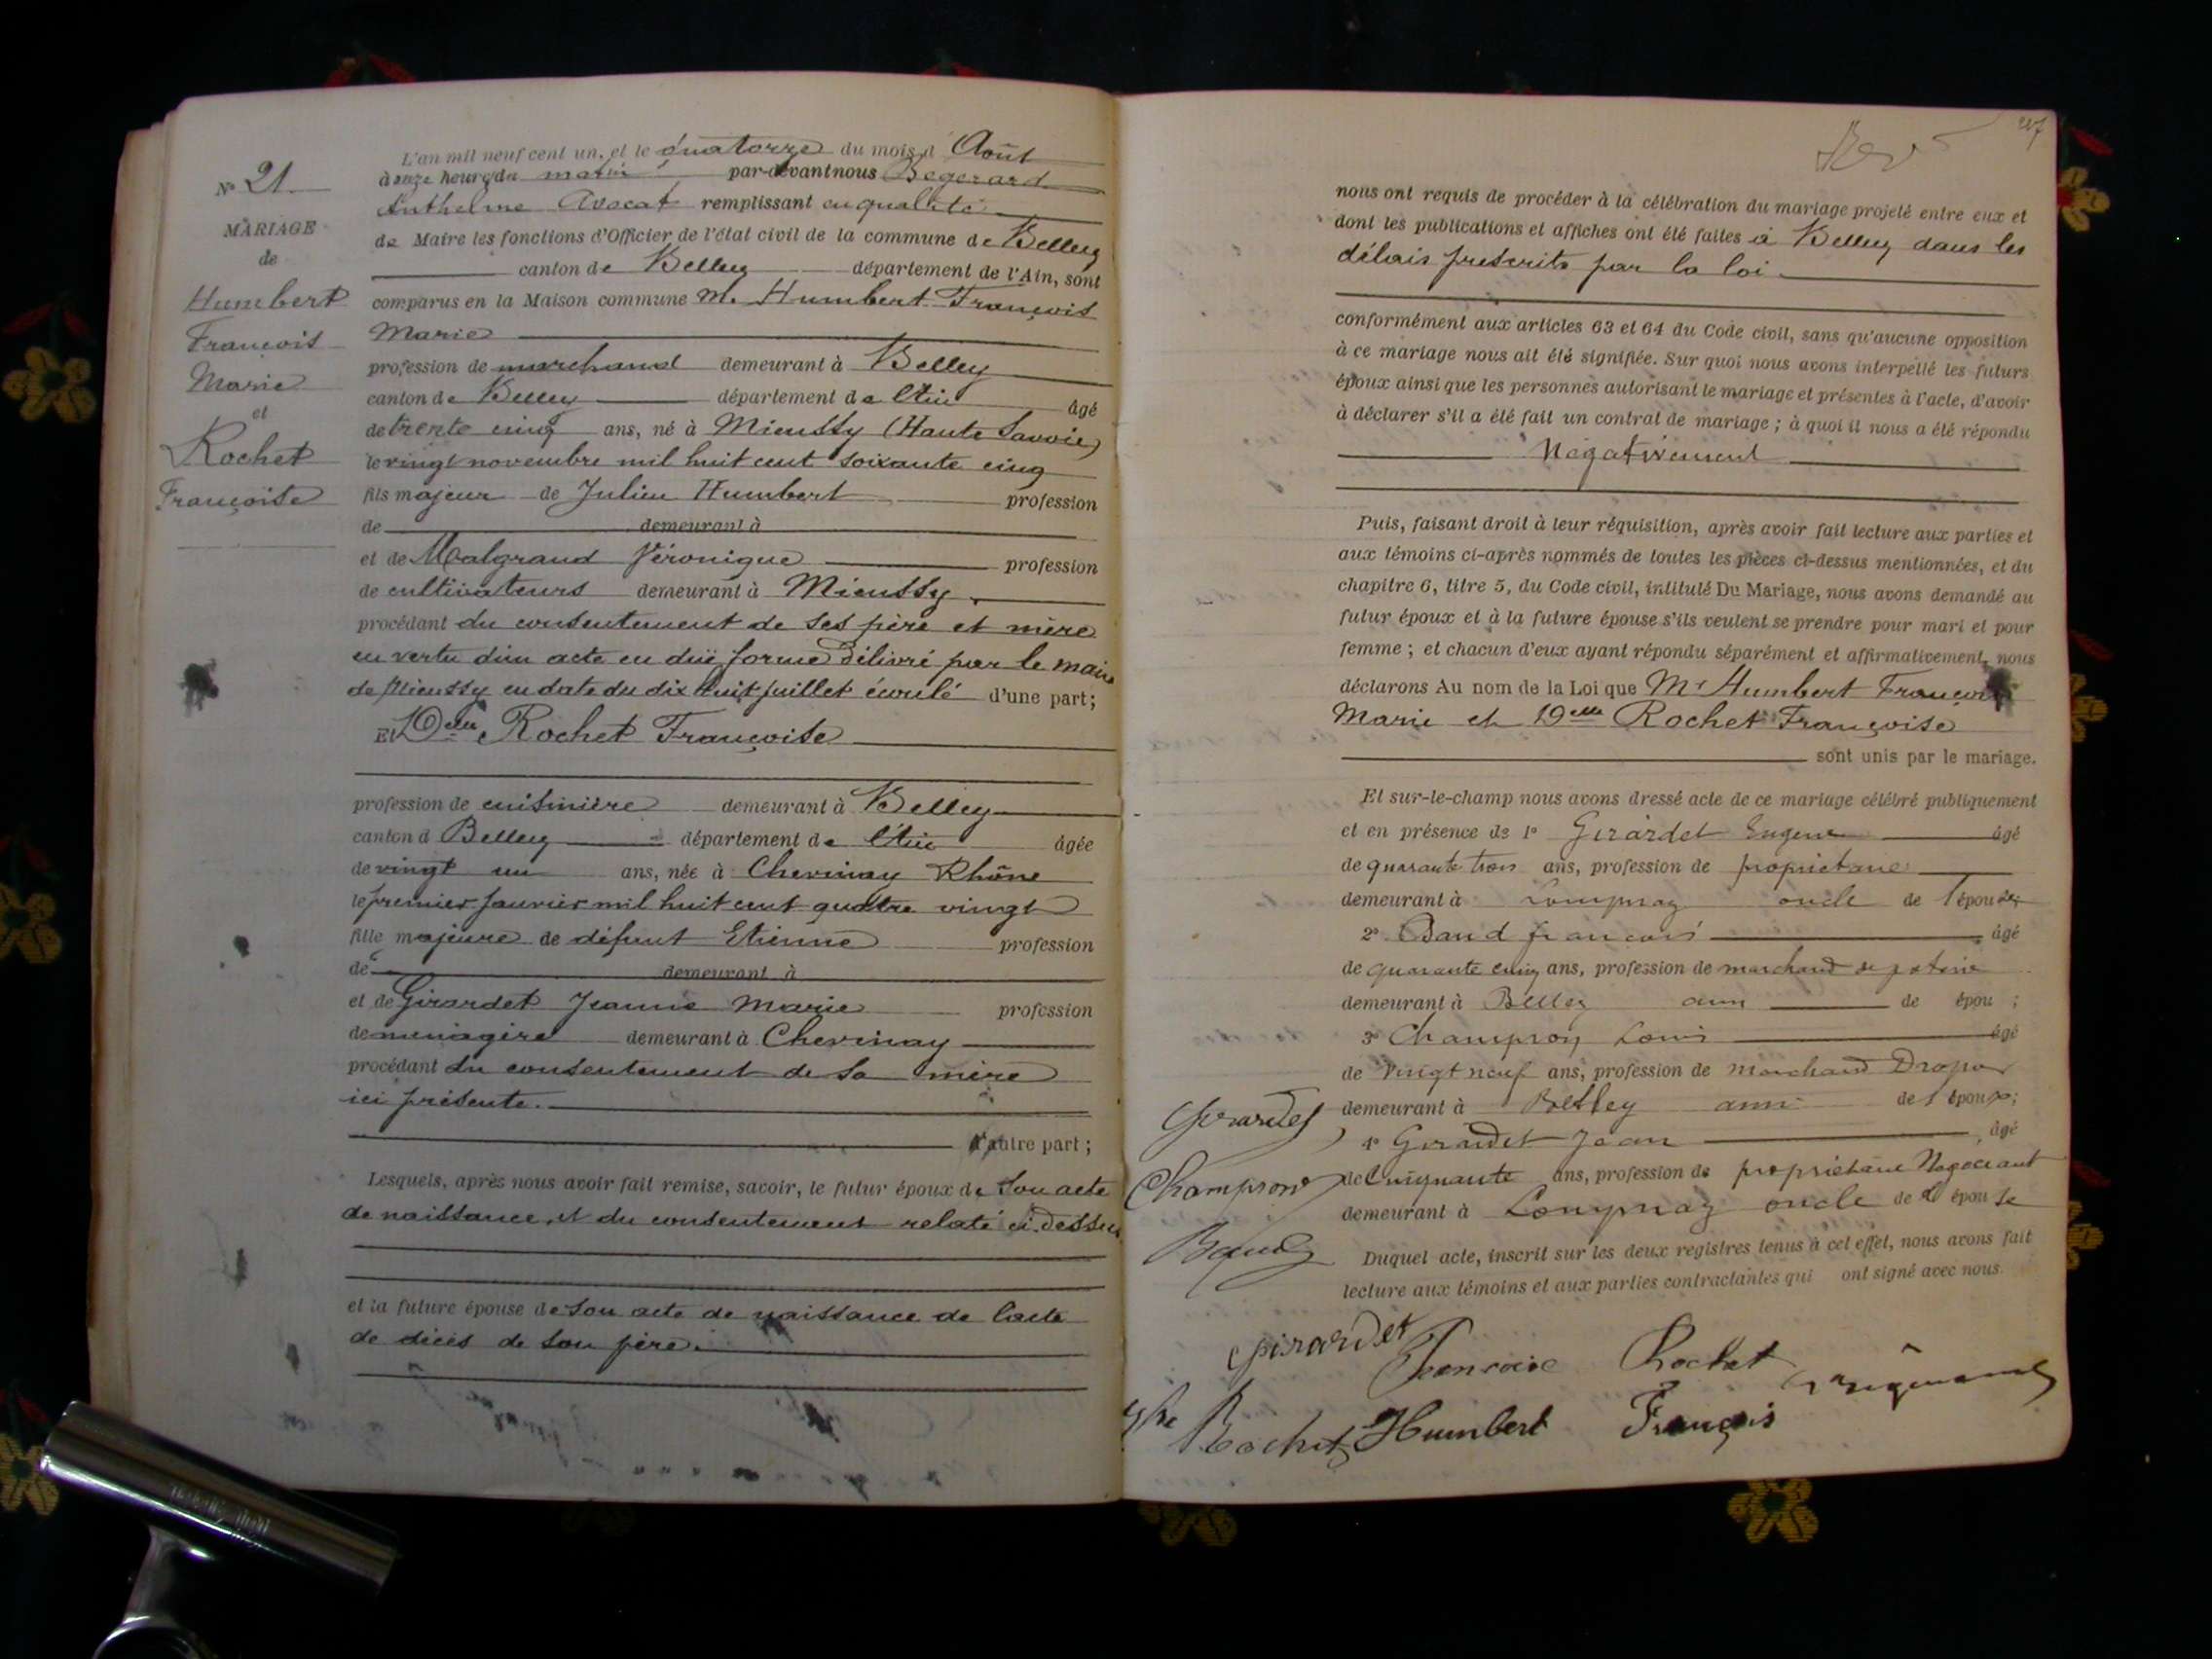 N° 21
MARIAGE
de
Humbert
François
Marie
et
Rochet
Françoise
L'an mil neuf cent un, et le quatorze du mois d'Août
à onze heures du matin par-devant nous
Anthelme Avocat remplissant en qualité
de Maire les fonctions d'Officier de l'état civil de la commune de Belley
canton de Belley département de l'Ain, sont
comparus en la Maison commune M. Humbert François
Marie
profession de marchand demeurant à Belley
canton de Belley département de l'Ain âgé
de trente cinq ans, né à Mieussy (Haute Savoie)
le vingt novembre mil huit cent soixante cinq
fils majeur de Julien Humbert profession
de demeurant à
et de Malgrand Véronique profession
de cultivateurs demeurant à Mieussy
procédant du consentement de ses père et mère
en vertu d'un acte en due forme délivré par le maire
de Mieussy en date du dix huit juillet écoulé d'une part;
Et Delle Rochet Françoise
profession de cuisinière demeurant à Belley
canton d Belley département de l'Ain âgée
de vingt un ans, née à Chevinay Rhône
le premier janvier mil huit cent quatre vingt
fille majeure de défunt Etienne profession
de demeurant à
et de Girardet Jeanne Marie profession
de ménagère demeurant à Chevinay
procédant du consentement de sa mère
ici présente.
d'autre part;
Lesquels, après nous avoir fait remise, savoir, le futur époux de son acte
de naissance, et du consentement relaté ci-dessus
et la future épouse de son acte de naissance de l'acte
de décès de son père.
nous ont requis de procéder à la célébration du mariage projeté entre eux et
dont les publications et affiches ont été faites à Belley dans les
délais prescrits par la loi
conformément aux articles 63 et 64 du Code civil, sans qu'aucune opposition
à ce mariage nous ait été signifiée. Sur quoi nous avons interpellé les futurs
époux ainsi que les personnes autorisant le mariage et présentes à l'acte, d'avoir
à déclarer s'il a été fait un contrat de mariage; à quoi il nous a été répondu
Négativement
Puis, faisant droit à leur réquisition, après avoir fait lecture aux parties et
aux témoins ci-après nommés de toutes les pièces ci-dessus mentionnées, et du
chapitre 6, titre 5, du Code civil, intitulé Du Mariage, nous avons demandé au
futur époux et à la future épouse s'ils veulent se prendre pour mari et pour
femme; et chacun d'eux ayant répondu séparément et affirmativement, nous
déclarons Au nom de la Loi que Mr Humbert François
Marie et Delle Rochet Françoise
sont unis par le mariage.
Et sur-le-champ nous avons dressé acte de ce mariage célébré publiquement
et en présence de 1° Girardet Eugène âgé
de quarante trois ans, profession de propriétaire
demeurant à oncle de l'épouse
2° Baud françois âgé
de quarante cinq ans, profession de marchand de poterie
demeurant à Belley ami de épou ;
3° Champion Louis âgé
de vingt neuf ans, profession de marchand Drapier
demeurant à Belley ami de l époux;
4° Girardet Jean âgé
de Cinquante ans, profession de propriétaire Négociant
demeurant à oncle de l' épouse
Duquel acte, inscrit sur les deux registres tenus à cet effet, nous avons fait
lecture aux témoins et aux parties contractantes qui ont signé avec nous.
Girardet
Champion
Baud
girardet
Francoise Rochet
Rochet Humbert François